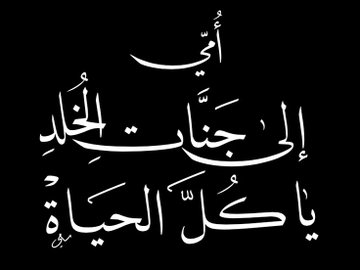 أُمّي
إلى جَنَّات الخُلدِ
يا كُلَّ الحياة